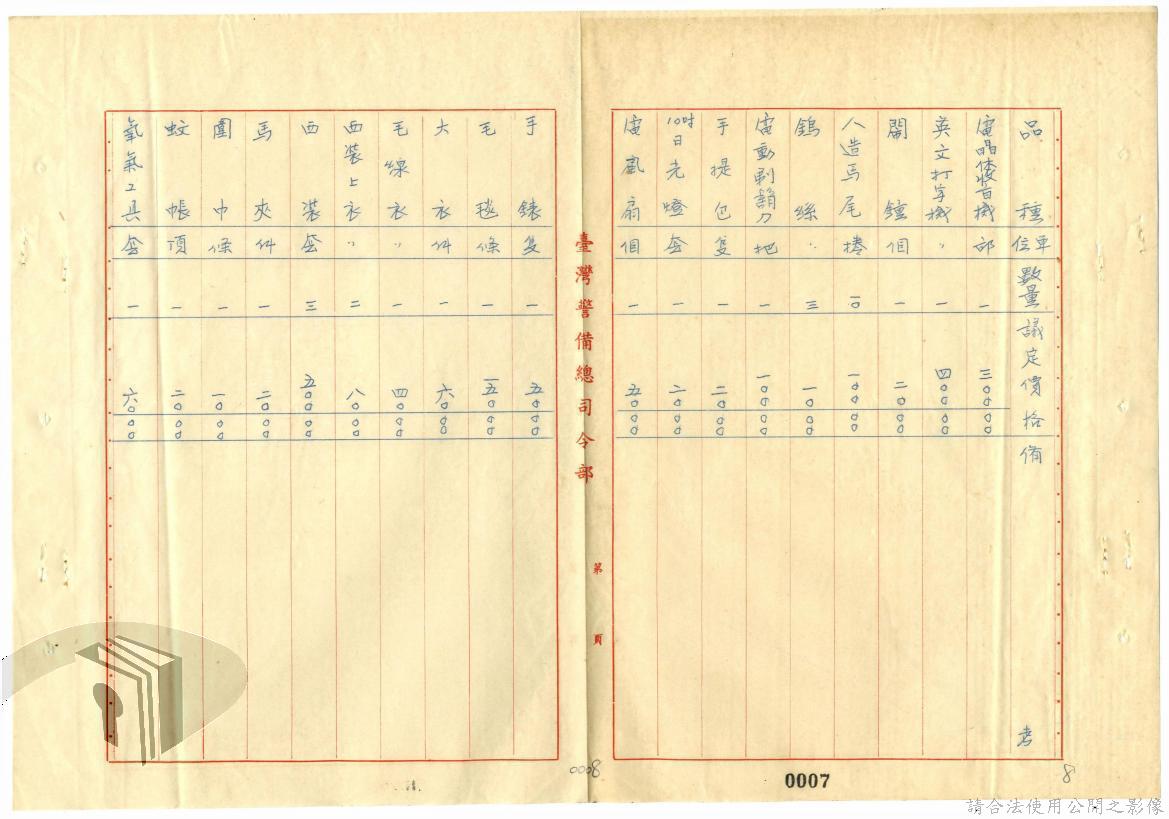 品種 單位 數量 議定價格 備考
電晶体收音機 部 一 三〇〇〇〇
英文打字機 〃 一 四〇〇〇〇
鬧鐘 個 一 二〇〇〇
人造馬尾 捲 一〇 一〇〇〇〇
鎢絲 〃 三 一〇〇〇
電動剃鬍刀 把 一 一〇〇〇〇
手提包 隻 一 二〇〇〇
10吋日光燈 套 一 二〇〇〇
電風扇 個 一 五〇〇〇
臺灣警備總司令部
第 頁
手錶 隻 一 五〇〇〇
毛毯 條 一 一五〇〇〇
大衣 件 一 六〇〇〇
毛線衣 〃 一 四〇〇〇
西裝上衣 〃 二 八〇〇〇
西裝 套 三 五〇〇〇〇
馬夾 件 一 二〇〇〇
圍巾 條 一 一〇〇〇
蚊帳 頂 一 二〇〇〇
氧氣工具 套 一 六〇〇〇
0008
0007
8
請合法使用公開之影像